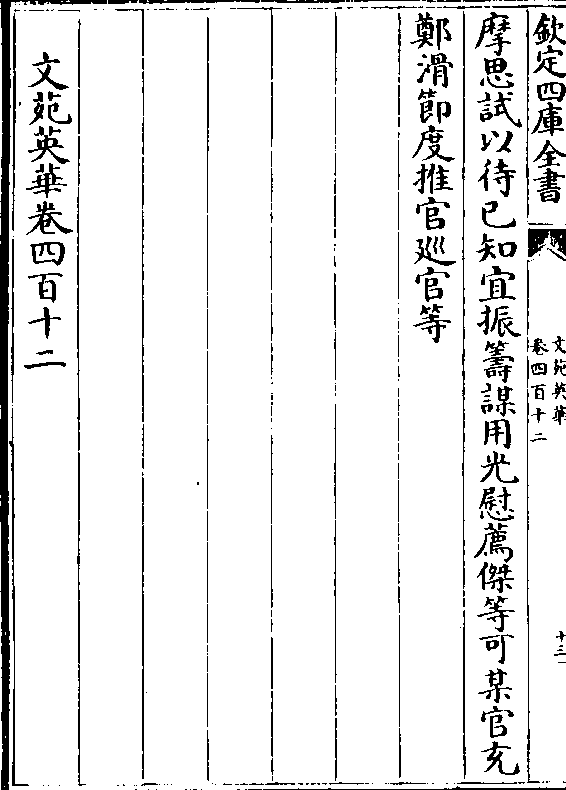 欽定四庫全書
文苑英華
卷四百十二
十三
摩思試以待已知宜振籌謀用光慰薦傑等可某官充
鄭滑節度推官巡官等
文苑英華卷四百十二